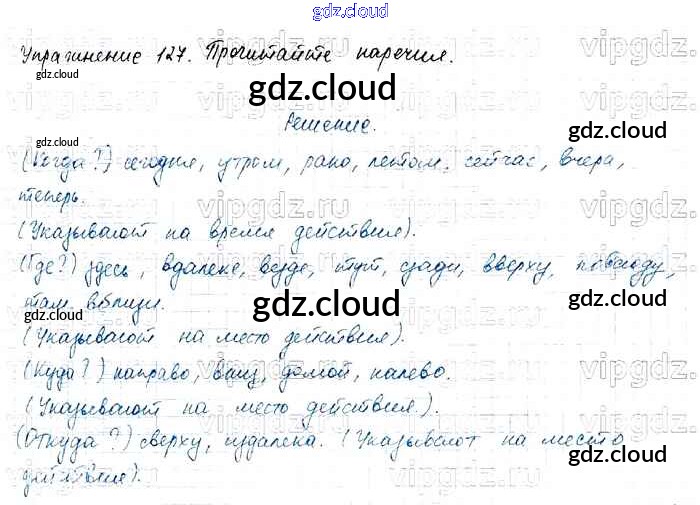 gdz.cloud
Упражнение 127. Прочитайте наречия.
gdz.cloud
vipgdz.ru
gdz.cloud
Решение.
gdz.cloud
gdz.cloud
(Когда?) сегодня, утром, рано, летом, сейчас, вчера,
теперь.
vipgdz.ru
(Указывают на время действия).
(Где?) здесь, вдалеке, везде, тут, сзади, вверху, повсюду,
там, вблизи.
gdz.cloud
gdz.cloud
gdz.cloud
(Указывают на место действия).
(Куда?) направо, вниз, домой, налево.
vipgdz.ru
(Указывают на место действия.).
(Откуда?) сверху, издалека. (Указывают на место
gdz.cloud
gdz.cloud
действия).